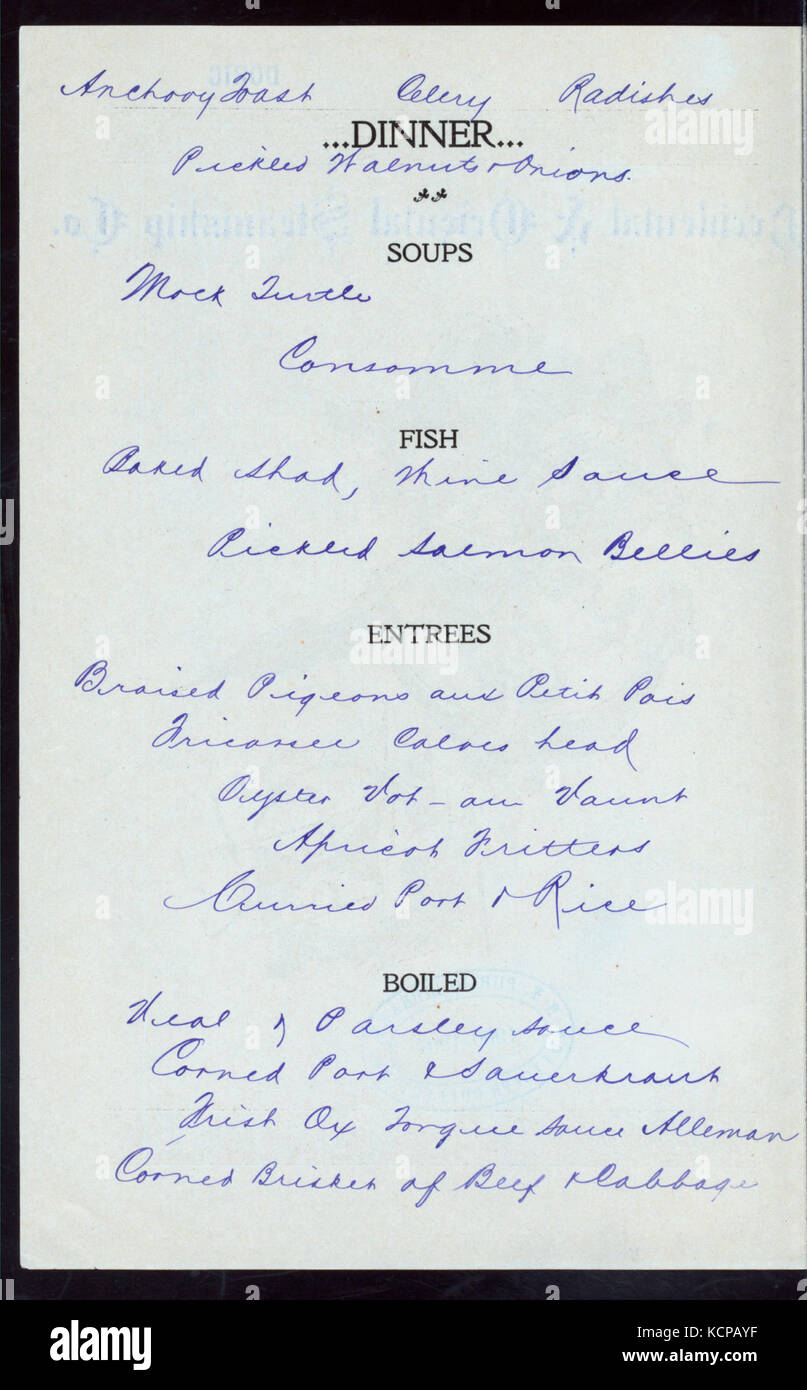 Anchovy Toast Celery Radishes
...DINNER...
Pickled Walnuts & Onions.
SOUPS
Mock Turtle
Consomme
FISH
Baked Shad, Wine Sauce
Pickled Salmon Bellies
ENTREES
Braised Pigeons aux Petit Pois
Fricassee Calves head
Oyster Vol-au Vaunt
Apricot Fritters
Curried Pork & Rice
BOILED
Veal & Parsley sauce
Corned Pork & Sauerkraut
Ox Tongue sauce Alleman
Corned Brisket of Beef & Cabbage
alamy
alamy
alamy
alamy
Image ID: KCPAYF
www.alamy.com